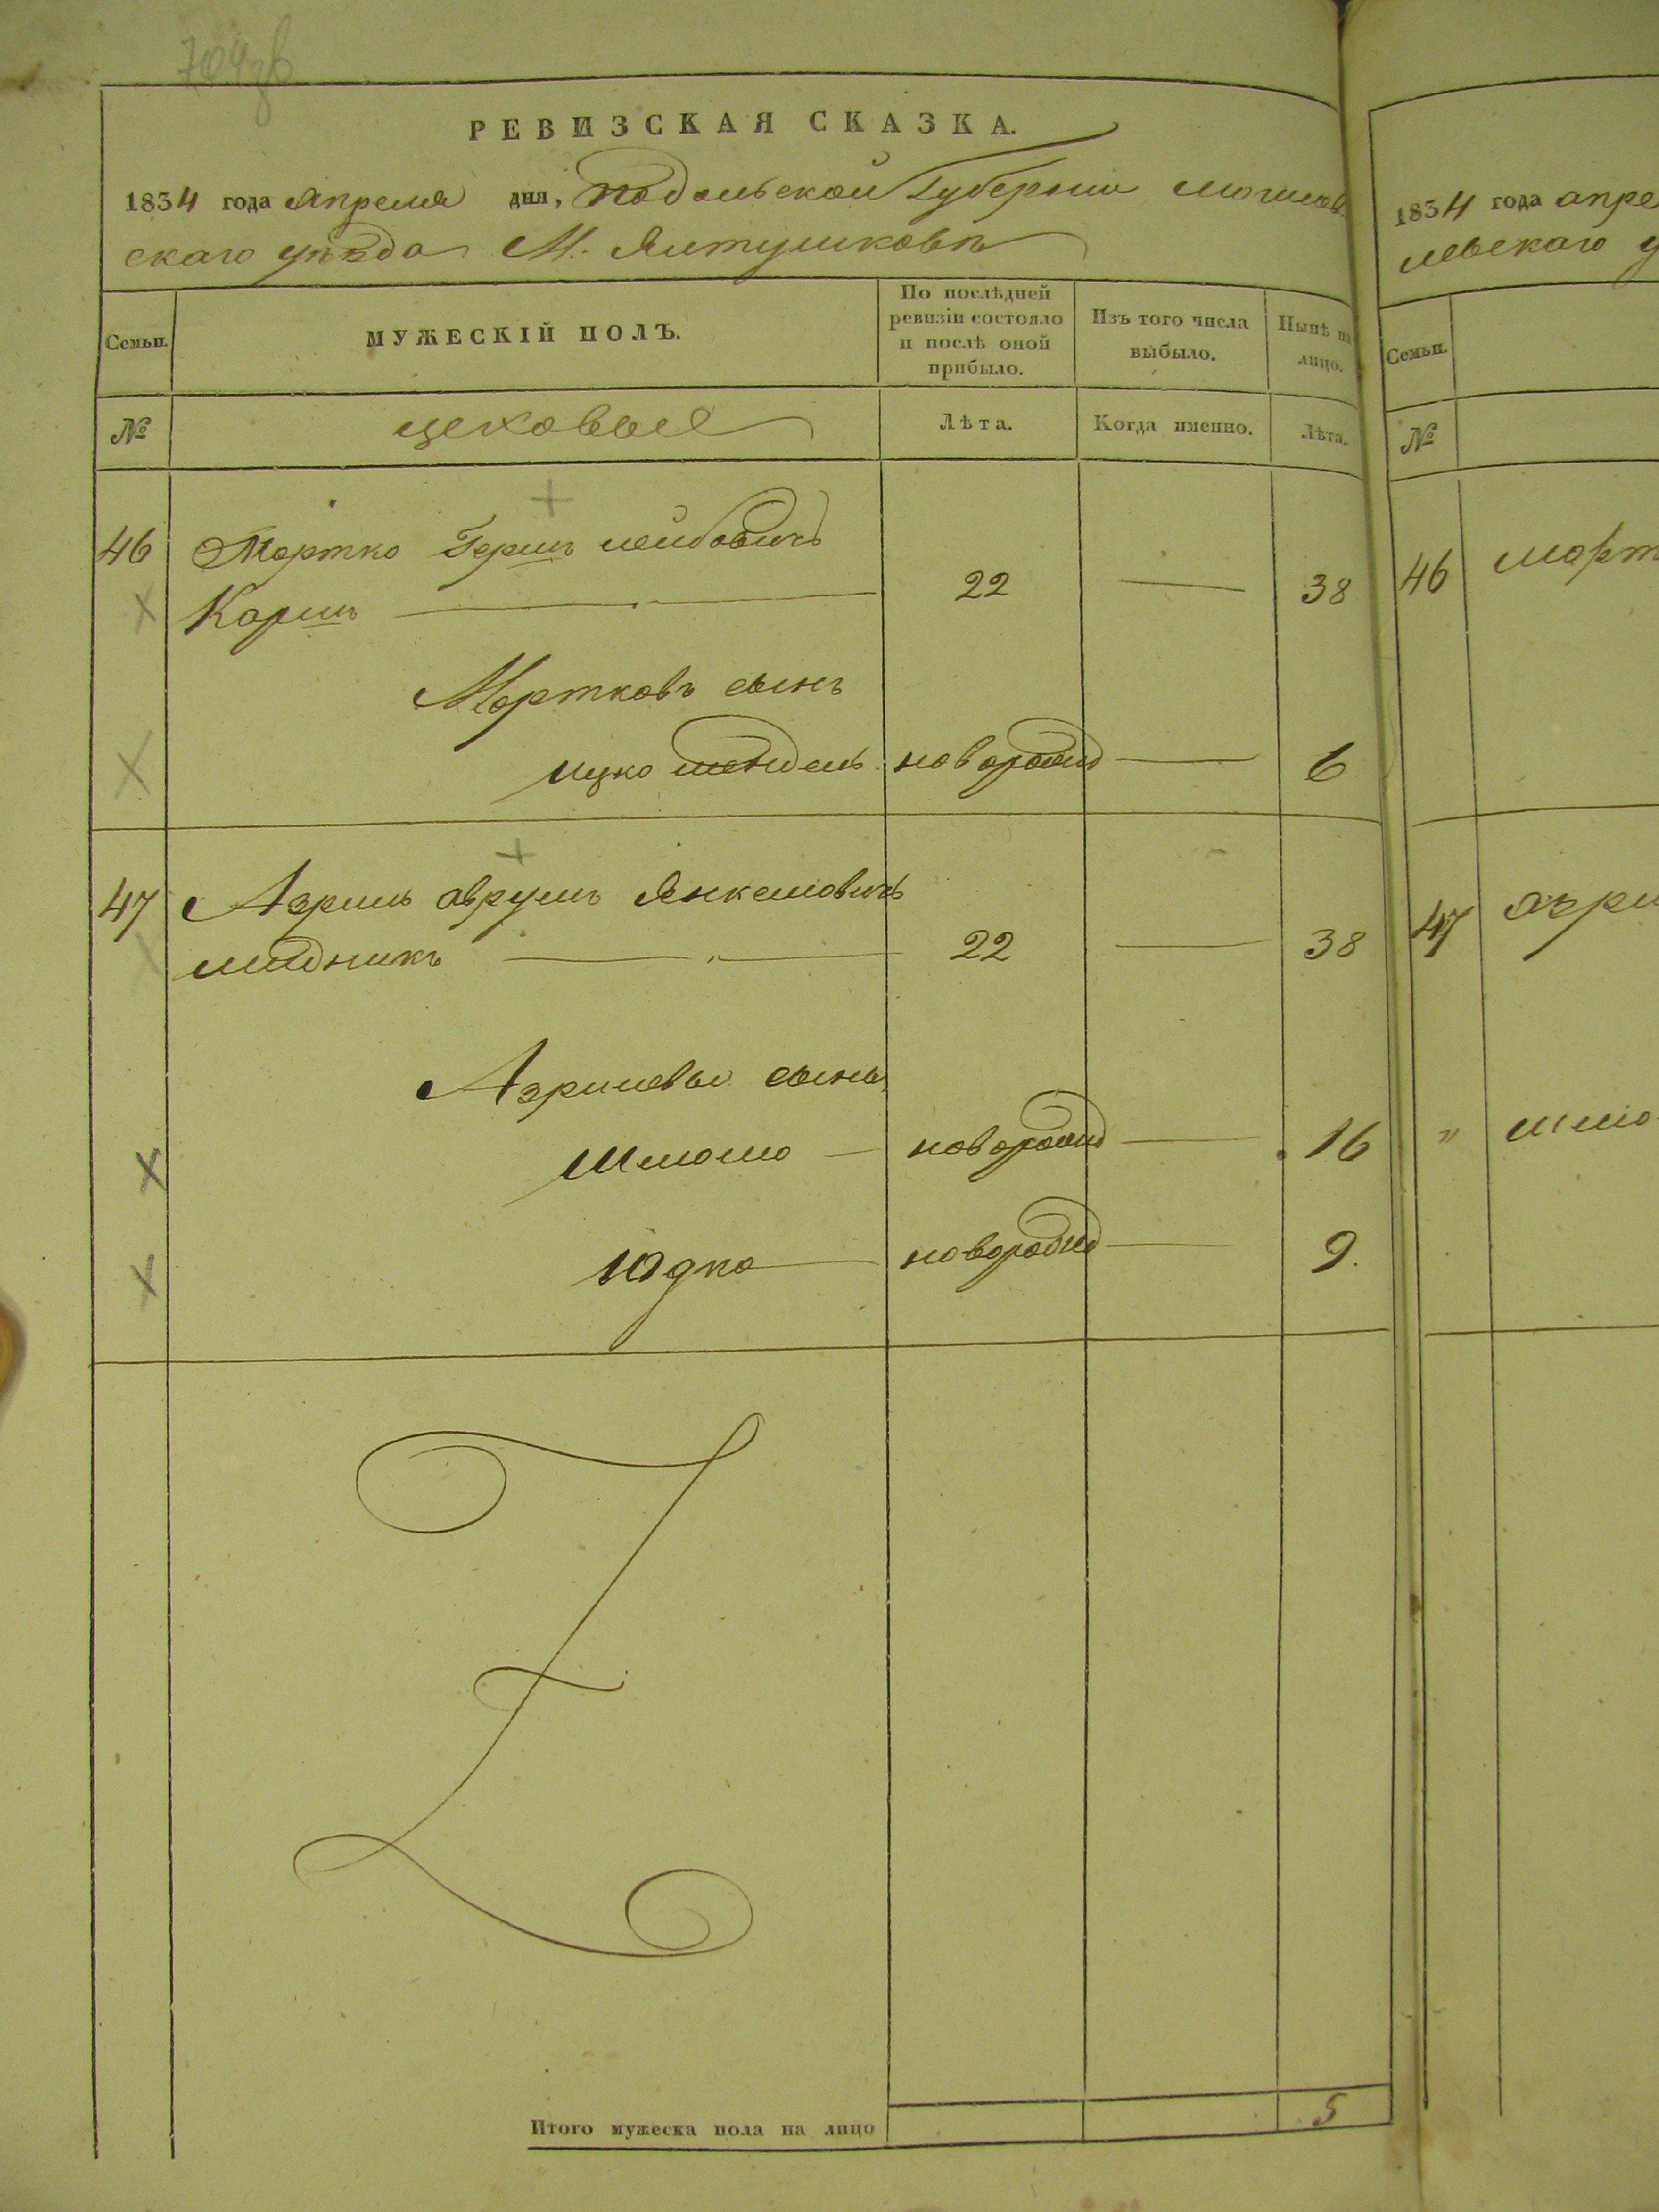 704зв
РЕВИЗСКАЯ СКАЗКА.
1834 года апреля дня, Подольской Губернии могилев
скаго уѣзда М. Ялтушковѣ
Семьи.
МУЖЕСКІЙ ПОЛЪ.
По послѣдней ревизіи состояло и послѣ оной прибыло.
Изъ того числа выбыло.
Нынѣ на лицо.
№
цеховые
Лѣта.
Когда именно.
Лѣта.
46 Мортко Герш лейбовичъ
Карш 22 38
Мортковъ сынъ
ицко мендель новорожд 6
47 Азриль аврумъ Янкеловичъ
мидникъ 22 38
Азрилевы сыны
Шлиома новорожд 16
Юдко новорожд 9.
Итого мужеска пола на лицо 5
1834 года апре
левскаго у
Семьи.
№
46 морт
47 азри
" шлио